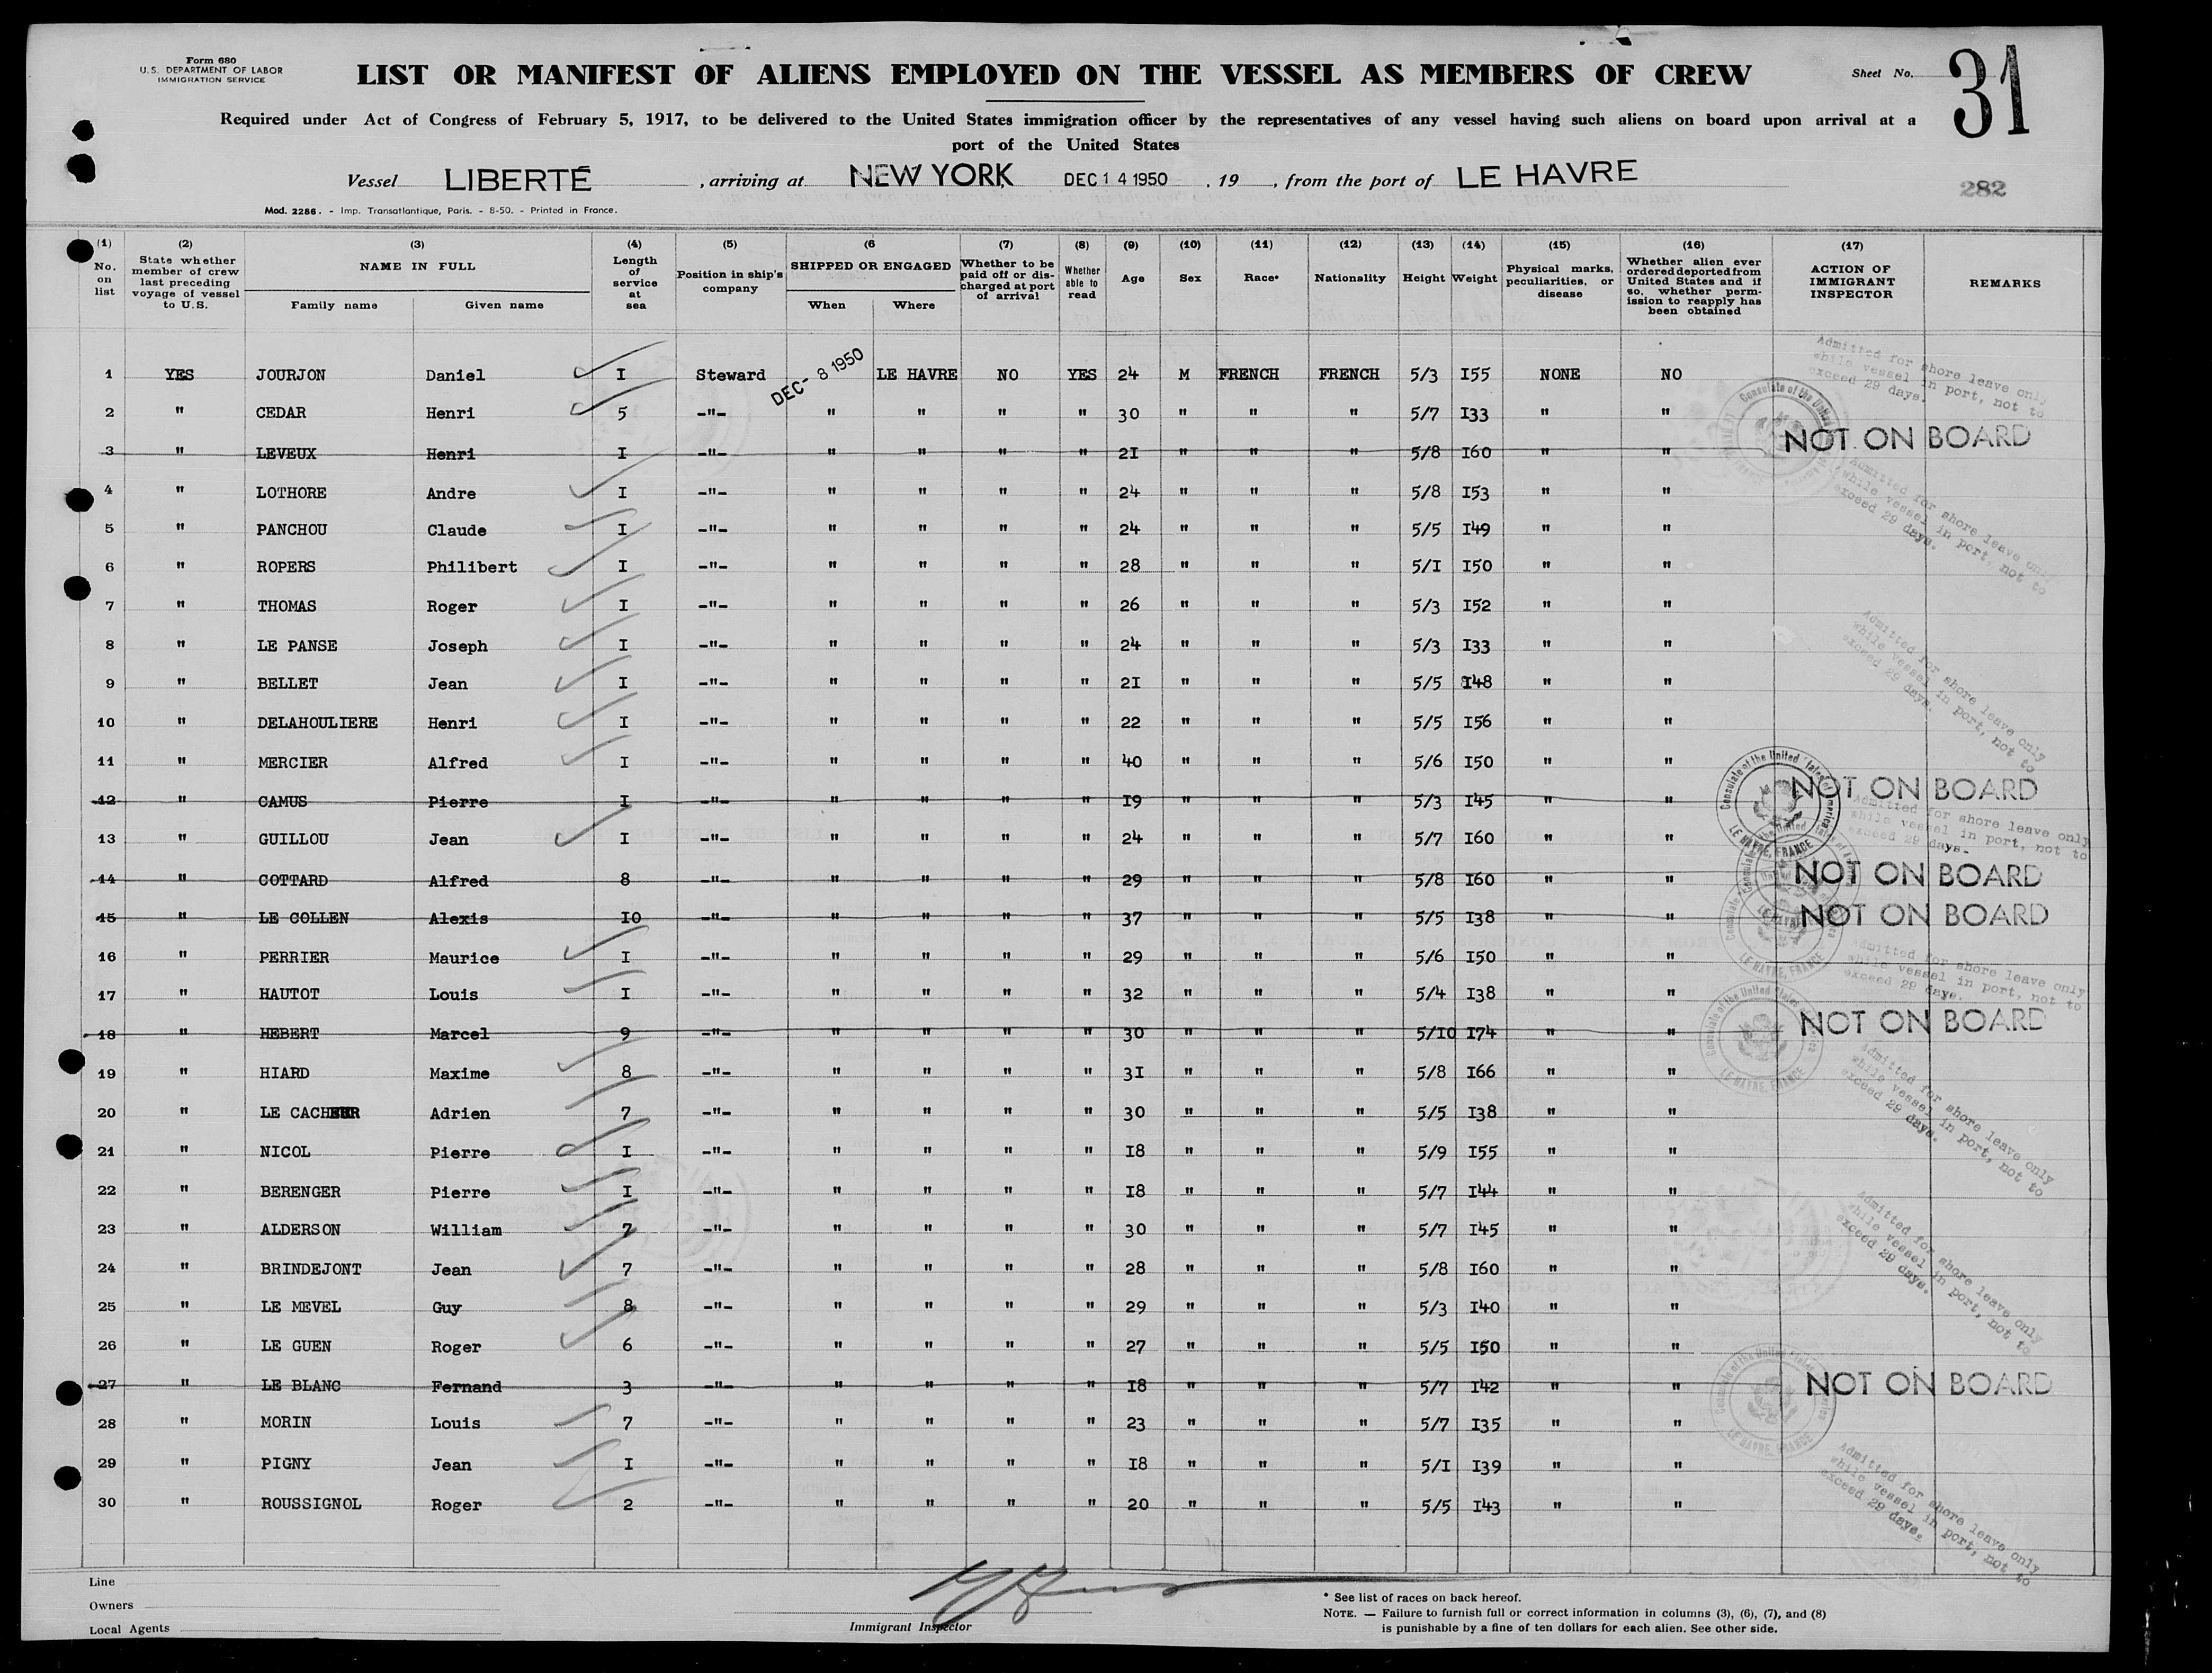 Form 680
U.S. DEPARTMENT OF LABOR
IMMIGRATION SERVICE
LIST OR MANIFEST OF ALIENS EMPLOYED ON THE VESSEL AS MEMBERS OF CREW
Sheet No. 31
Required under Act of Congress of February 5, 1917, to be delivered to the United States immigration officer by the representatives of any vessel having such aliens on board upon arrival at a
port of the United States
Vessel LIBERTÉ , arriving at NEW YORK DEC 14 1950 , 19 , from the port of LE HAVRE
282
Mod. 2286. - Imp. Transatlantique, Paris. - 8-50. - Printed in France.
(1) No. on list (2) State whether member of crew last preceding voyage of vessel to U.S. (3) NAME IN FULL Family name Given name (4) Length of service at sea (5) Position in ship's company (6 SHIPPED OR ENGAGED When Where (7) Whether to be paid off or discharged at port of arrival (8) Whether able to read (9) Age (10) Sex (11) Race* (12) Nationality (13) Height (14) Weight (15) Physical marks, peculiarities, or disease (16) Whether alien ever ordered deported from United States and if so, whether permission to reapply has been obtained (17) ACTION OF IMMIGRANT INSPECTOR REMARKS
1 YES JOURJON Daniel I Steward DEC - 8 1950 LE HAVRE NO YES 24 M FRENCH FRENCH 5/3 I55 NONE NO
Admitted for shore leave only while vessel in port, not to exceed 29 days.
2 " CEDAR Henri 5 -"- " " " " 30 " " " 5/7 I33 " "
3 " LEVEUX Henri I -"- " " " " 2I " " " 5/8 I60 " " NOT ON BOARD
4 " LOTHORE Andre I -"- " " " " 24 " " " 5/8 I53 " "
Admitted for shore leave only while vessel in port, not to exceed 29 days.
5 " PANCHOU Claude I -"- " " " " 24 " " " 5/5 I49 " "
6 " ROPERS Philibert I -"- " " " " 28 " " " 5/I I50 " "
7 " THOMAS Roger I -"- " " " " 26 " " " 5/3 I52 " "
8 " LE PANSE Joseph I -"- " " " " 24 " " " 5/3 I33 " "
Admitted for shore leave only while vessel in port, not to exceed 29 days.
9 " BELLET Jean I -"- " " " " 2I " " " 5/5 I48 " "
10 " DELAHOULIERE Henri I -"- " " " " 22 " " " 5/5 I56 " "
11 " MERCIER Alfred I -"- " " " " 40 " " " 5/6 I50 " "
12 " CAMUS Pierre I -"- " " " " I9 " " " 5/3 I45 " " NOT ON BOARD
Consulate of the United States of America LE HAVRE, FRANCE
13 " GUILLOU Jean I -"- " " " " 24 " " " 5/7 I60 " "
Admitted for shore leave only while vessel in port, not to exceed 29 days.
14 " COTTARD Alfred 8 -"- " " " " 29 " " " 5/8 I60 " " NOT ON BOARD
15 " LE COLLEN Alexis IO -"- " " " " 37 " " " 5/5 I38 " " NOT ON BOARD
16 " PERRIER Maurice I -"- " " " " 29 " " " 5/6 I50 " "
Admitted for shore leave only while vessel in port, not to exceed 29 days.
17 " HAUTOT Louis I -"- " " " " 32 " " " 5/4 I38 " "
18 " HEBERT Marcel 9 -"- " " " " 30 " " " 5/I0 I74 " " NOT ON BOARD
19 " HIARD Maxime 8 -"- " " " " 3I " " " 5/8 I66 " "
Admitted for shore leave only while vessel in port, not to exceed 29 days.
20 " LE CACHEUR Adrien 7 -"- " " " " 30 " " " 5/5 I38 " "
21 " NICOL Pierre I -"- " " " " I8 " " " 5/9 I55 " "
22 " BERENGER Pierre I -"- " " " " I8 " " " 5/7 I44 " "
23 " ALDERSON William 7 -"- " " " " 30 " " " 5/7 I45 " "
Admitted for shore leave only while vessel in port, not to exceed 29 days.
24 " BRINDEJONT Jean 7 -"- " " " " 28 " " " 5/8 I60 " "
25 " LE MEVEL Guy 8 -"- " " " " 29 " " " 5/3 I40 " "
26 " LE GUEN Roger 6 -"- " " " " 27 " " " 5/5 I50 " "
27 " LE BLANC Fernand 3 -"- " " " " I8 " " " 5/7 I42 " " NOT ON BOARD
28 " MORIN Louis 7 -"- " " " " 23 " " " 5/7 I35 " "
29 " PIGNY Jean I -"- " " " " I8 " " " 5/I I39 " "
30 " ROUSSIGNOL Roger 2 -"- " " " " 20 " " " 5/5 I43 " "
Admitted for shore leave only while vessel in port, not to exceed 29 days.
Line
Owners
Local Agents
Immigrant Inspector
* See list of races on back hereof.
NOTE. — Failure to furnish full or correct information in columns (3), (6), (7), and (8)
is punishable by a fine of ten dollars for each alien. See other side.